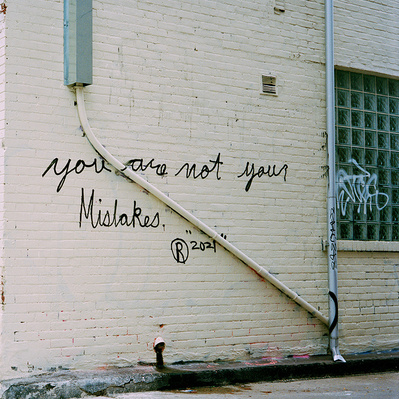 you are not your
Mislakes.
® "2021"